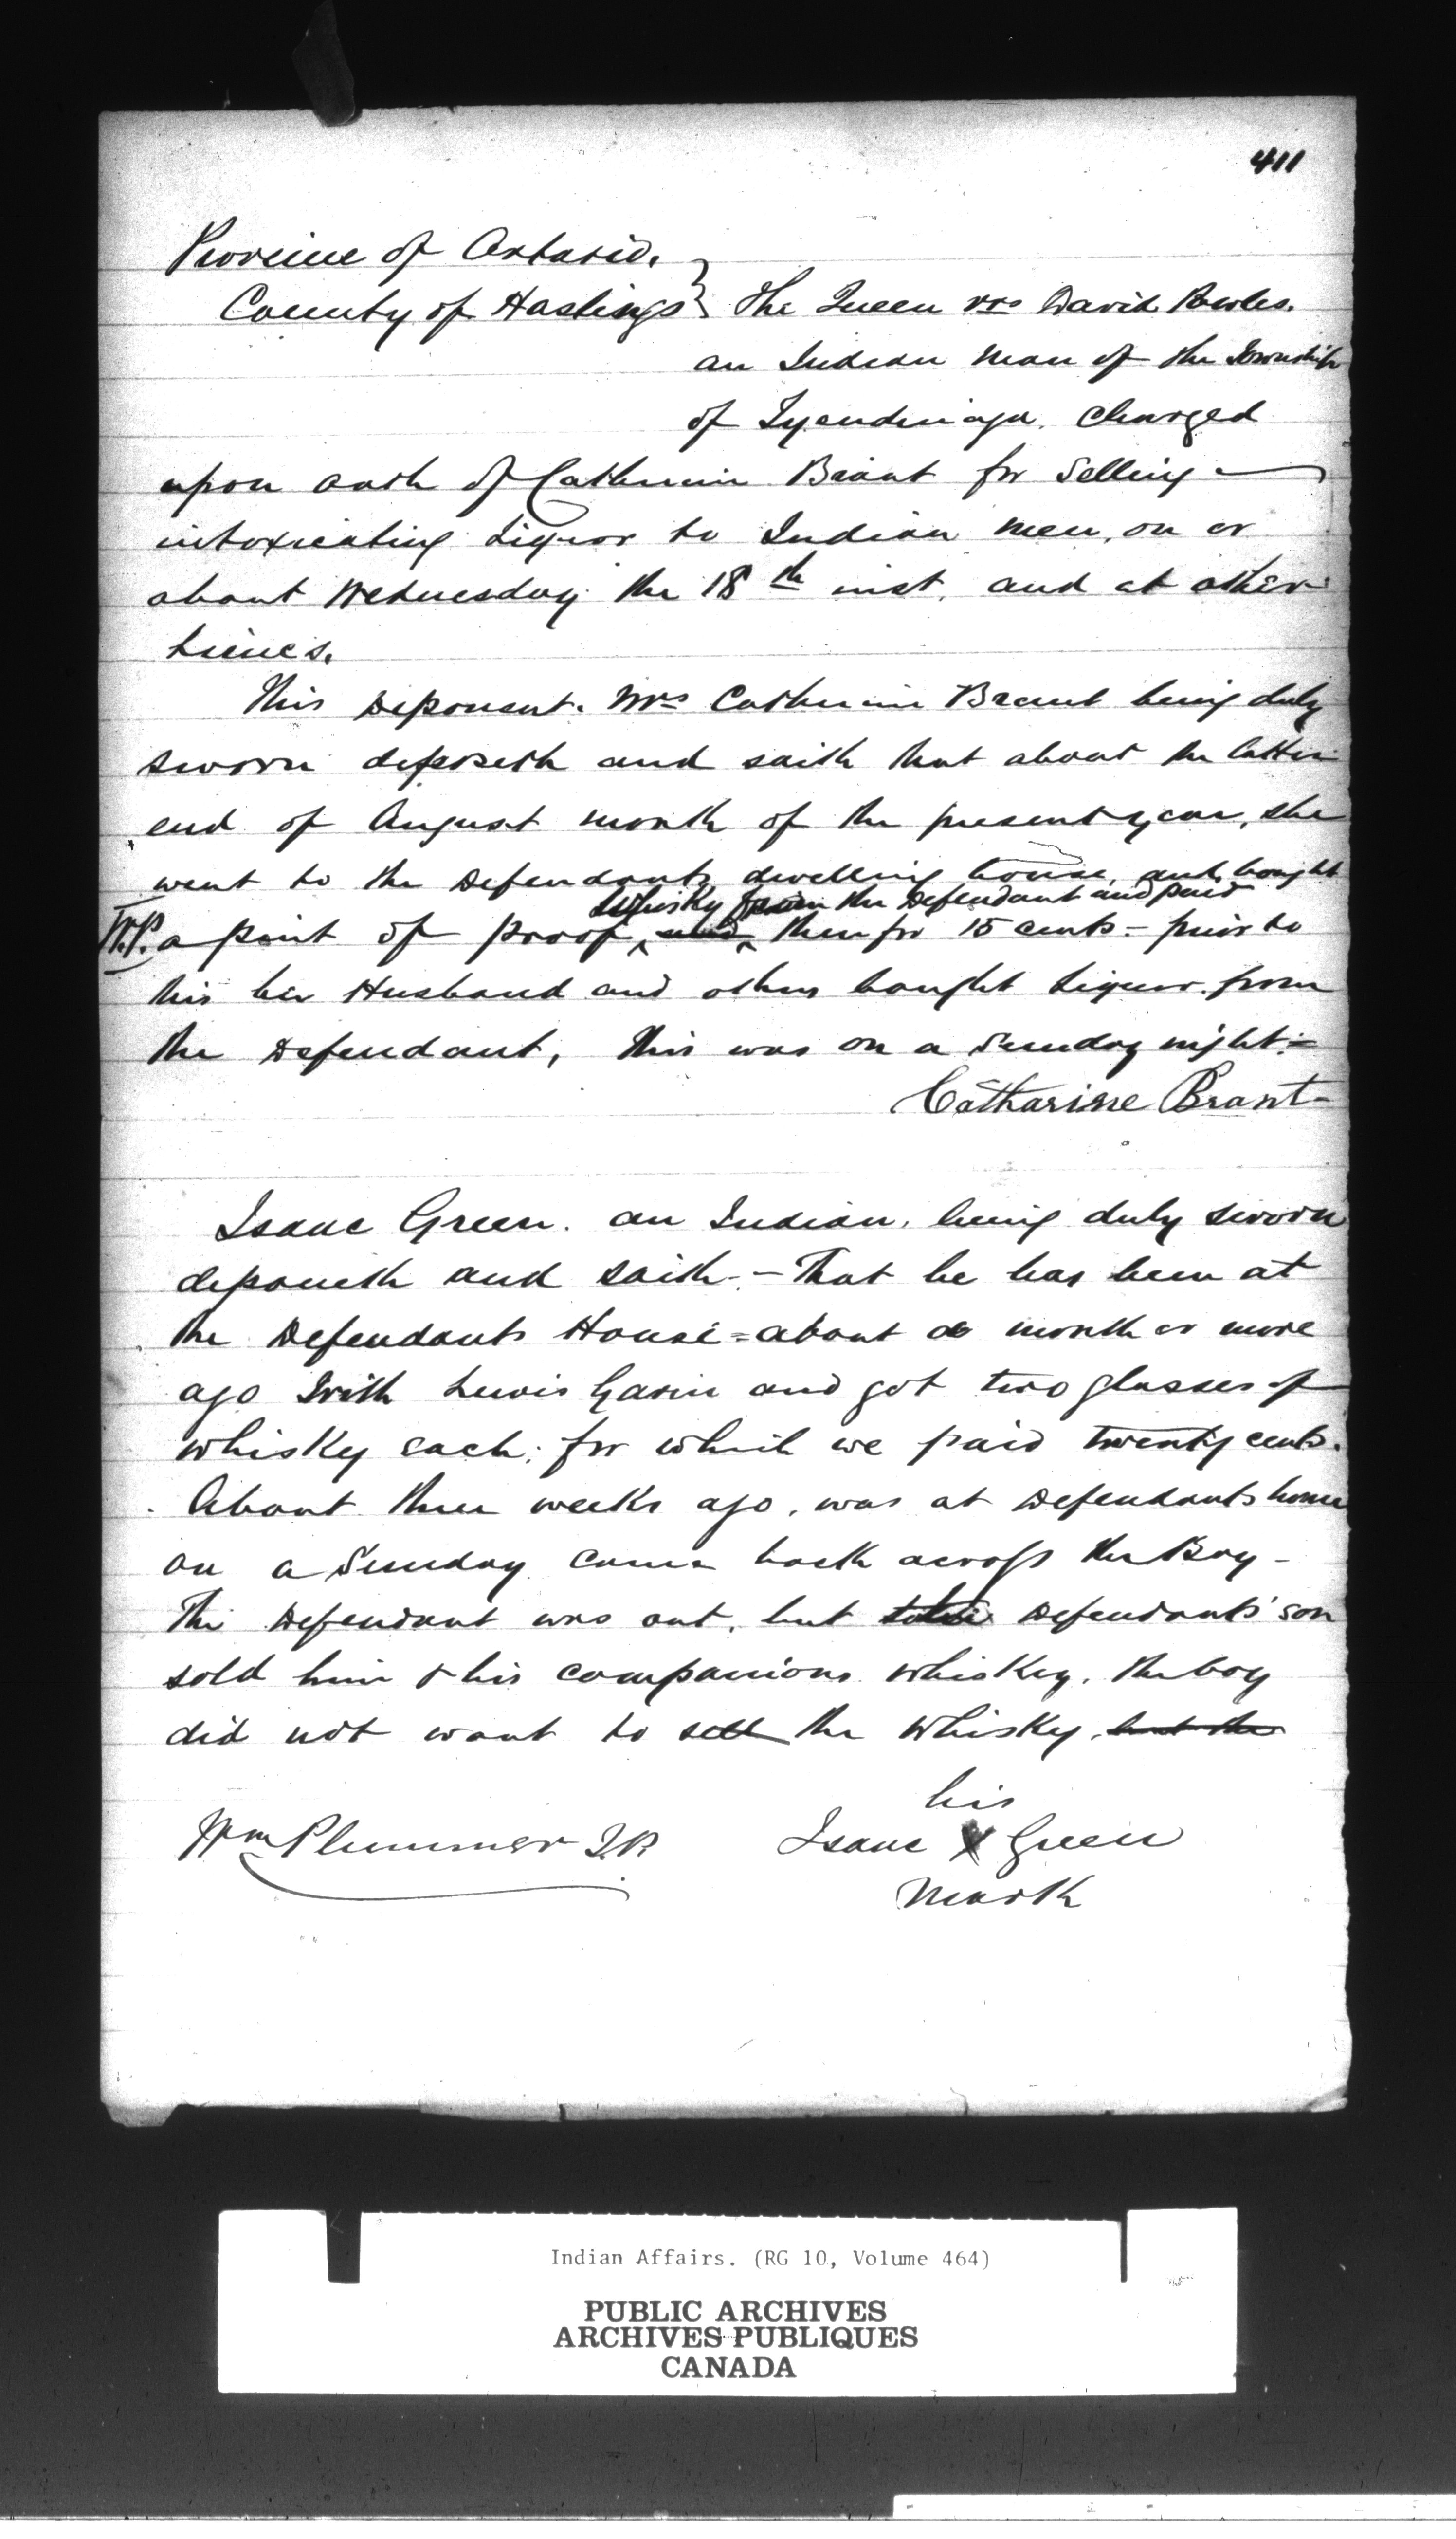 411
Province of Ontario.
County of Hastings } The Queen vrs David Powles.
an Indian man of the Township
of Tyendinaga. Charged
upon oath of Catherine Brant for Selling
intoxicating Liquor to Indian men, on or
about Wednesday the 18th inst. and at other
times.
This Deponent. Mrs Catherine Brant being duly
sworn deposeth and saith that about the latter
end of August month of the present year, she
went to the Defendants dwelling house, and bought
Whisky from the Defendant and paid
W.P. a pint of proof and then for 15 cents - prior to
this her Husband and others bought Liquor from
the Defendant, this was on a Sunday night -
Catharine Brant -
Isaac Green. an Indian, being duly sworn
deponeth and saith - That he has been at
the Defendants House = about a month or more
ago with Lewis and got two glasses of
whisky each; for which we paid twenty cents.
About three weeks ago, was at Defendants house
on a Sunday came back across the Bay -
The Defendant was out, but Defendants' son
sold him & his companions whiskey. the boy
did not want to sell the whisky, but the
his
Wm Plummer J.P. Isaac X Green
Mark
Indian Affairs. (RG 10, Volume 464)
PUBLIC ARCHIVES
ARCHIVES PUBLIQUES
CANADA